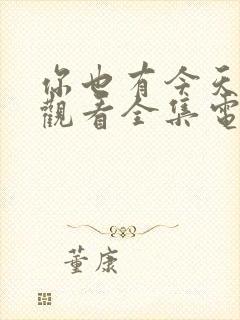 你也有今天
觀看全集電
董康